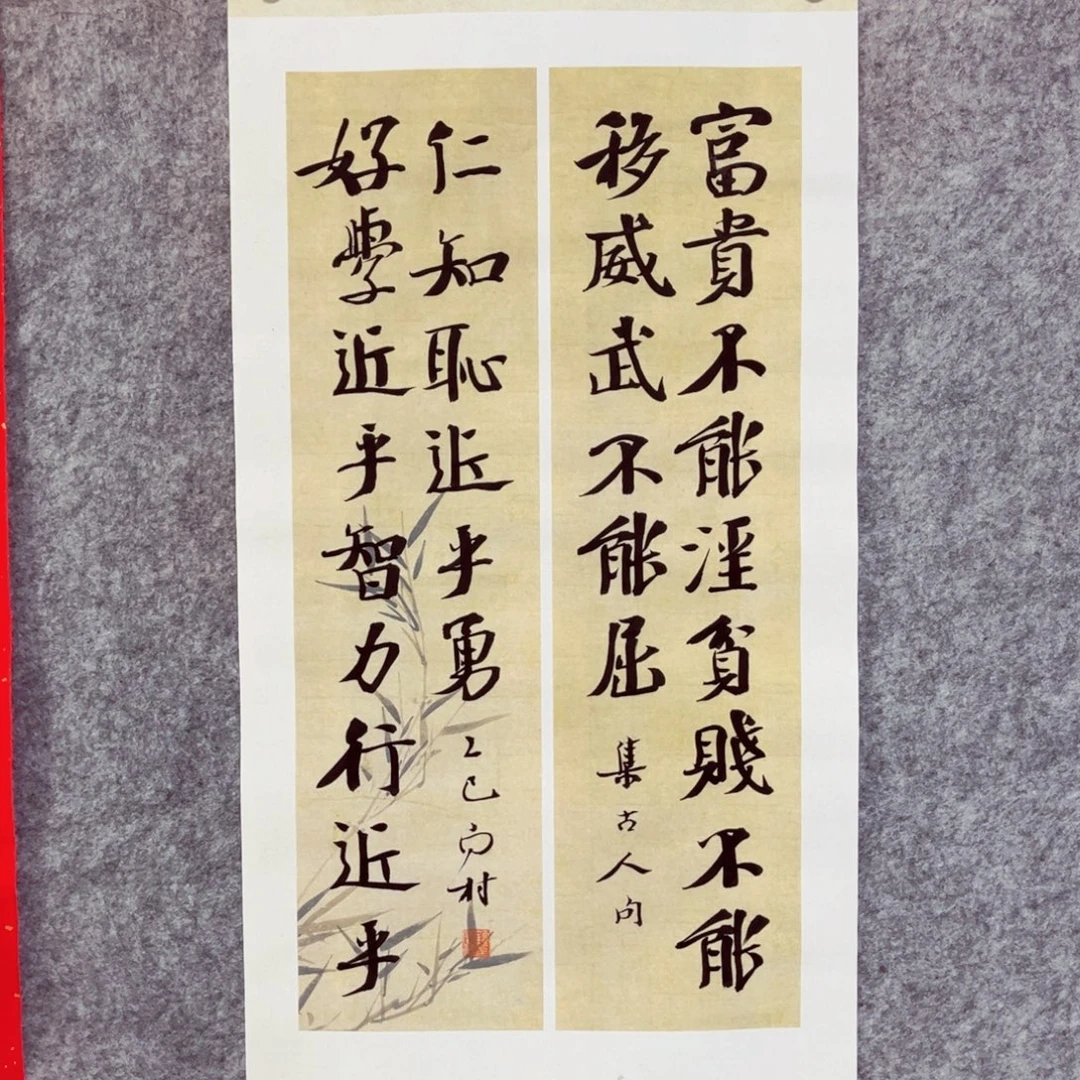 富貴不能淫貧賤不能
移威武不能屈 集古人句
好學近乎智力行近乎
仁知恥近乎勇 乙巳 雨村